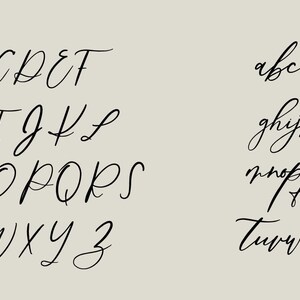 CDEF
JKL
OPQRS
WXYZ
abc
ghij
mnop
tuvw